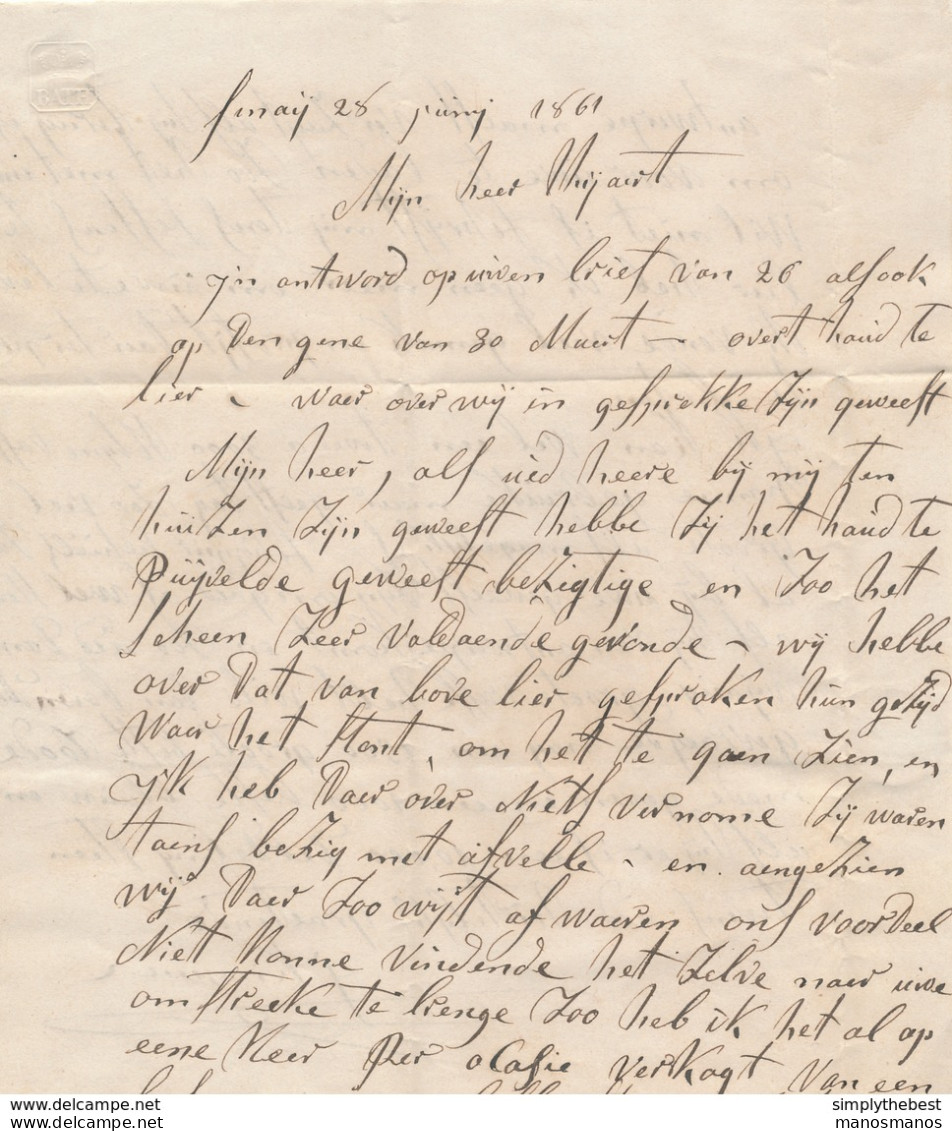 Smaij 28 junij 1861
Mijn heer Thijaert
Jn antword op uwen brief van 26 alsook
op den gene van 30 Maert — overt haud te
lier – waer over wij in gesprekke Zijn geweest
Mijn heer, als ued heere bij mij ten
huiZen Zijn geweest hebbe Zij het haud te
Puijvelde geweest beZigtige en Zoo het
scheen Zeer voldaende gevonde – wij hebbe
over dat van bove lier gesproken hun geZijd
waer het stont, om het te gaen Zien, en
yk heb daer over Niets vernome Zij waren
taens beZig met afvelle – en aengeZien
wij daer Zoo wijt af waeren ons voordeel
Niet konne vindende het Zelve naer uwe
omstreeke te brenge Zoo heb ik het al op
eene keer Per ocasie verkogt van een
simplythebest
manosmanos